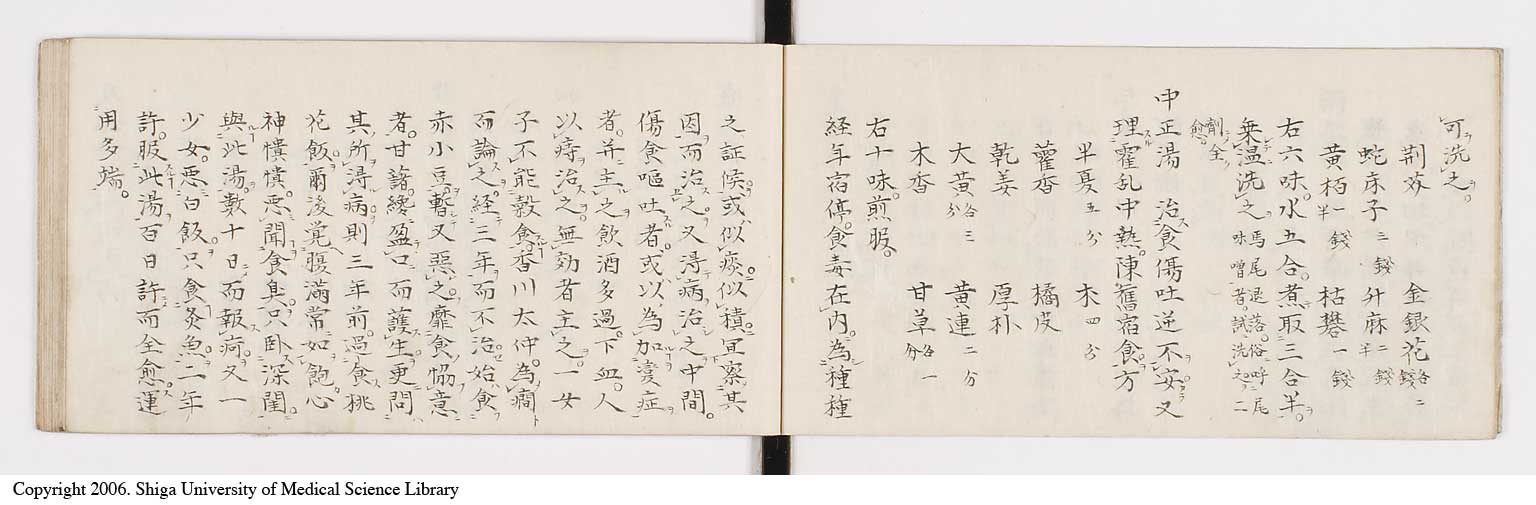 可洗之。
荊芥 金銀花各二錢
蛇床子二錢 升麻二錢半
黄栢一錢半 枯礬一錢
右六味。水五合。煮取三合半。
乗温洗之馬尾退落。俗呼尾味噌者。試洗之。二
劑全愈。
中正湯 治食傷吐逆不安。又
理霍乱中熱。陳舊宿食。方
半夏五分 木四分
藿香 橘皮
乾姜 厚朴
大黄各三分 黄連二分
木香 甘草各一分
右十味。煎服。
経年宿停。食毒在内。為種種
之証候。或似痰似積。冝察其
因而治之。又淂病治之中間。
傷食嘔吐者。或以為加変症
者。并主之。飲酒多過。下血。人
以痔治之。無効者主之。一女
子不能穀食。香川太仲。為癇
而論之。経三年而不治。始食
赤小豆。暫又惡之。靡食恊意
者。甘藷纔盈口。而護生。更問
其所淂病。則三年前。過食桃
花飯。爾後覚腹満常如飽。心
神憒憒。悪聞食臭。只卧深閨。
與此湯。數十日。而報痾。又一
少女。悪白飯。只食炙魚。二年
許。服此湯。百日許而全愈。運
用多端。
Copyright 2006. Shiga University of Medical Science Library